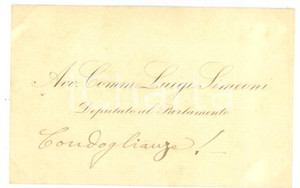 Avv. Comm. Luigi Simeoni
Deputato al Parlamento
Condoglianze!